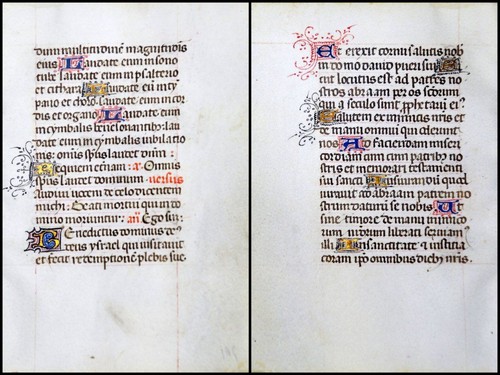 dum multitudinem magnitudinis
eius Laudate eum in sono
tube laudate eum in psalterio
et cithara Laudate eu in tym
pano et choro. laudate eum in cor
dis et organo Laudate
eum in cymbalis benesonantibus: lau
date eum in cymbalis iubilatio
nis: omnis spus laudet dnm:
Requiem eternam: a. Omnis
spus laudet dominum. versus
Audiui uocem de celo dicentem
michi: Beati mortui qui in do
mino moriuntur. an Ego sum:
Benedictus dominus
israel qui uisitauit
et fecit redemptionem plebis sue.
Et erexit cornu salutis nob
in domo dauid pueri sui
cut locutus est ad patres no
stros abraam
qui a seculo sunt prophetarum ei
Salutem ex inimicis nris et
de manu omnium qui oderunt
nos Ad faciendam miseri
cordiam cum patribus no
stris et memorari testamenti
sui sancti Iusiurandum quod
iurauit ad abraam patrem no
strum daturum se nobis Ut
sine timore de manu inimico
rum nrorum liberati seruiam
illi In sanctitate et iusticia
coram ipo omnibus diebus nris.